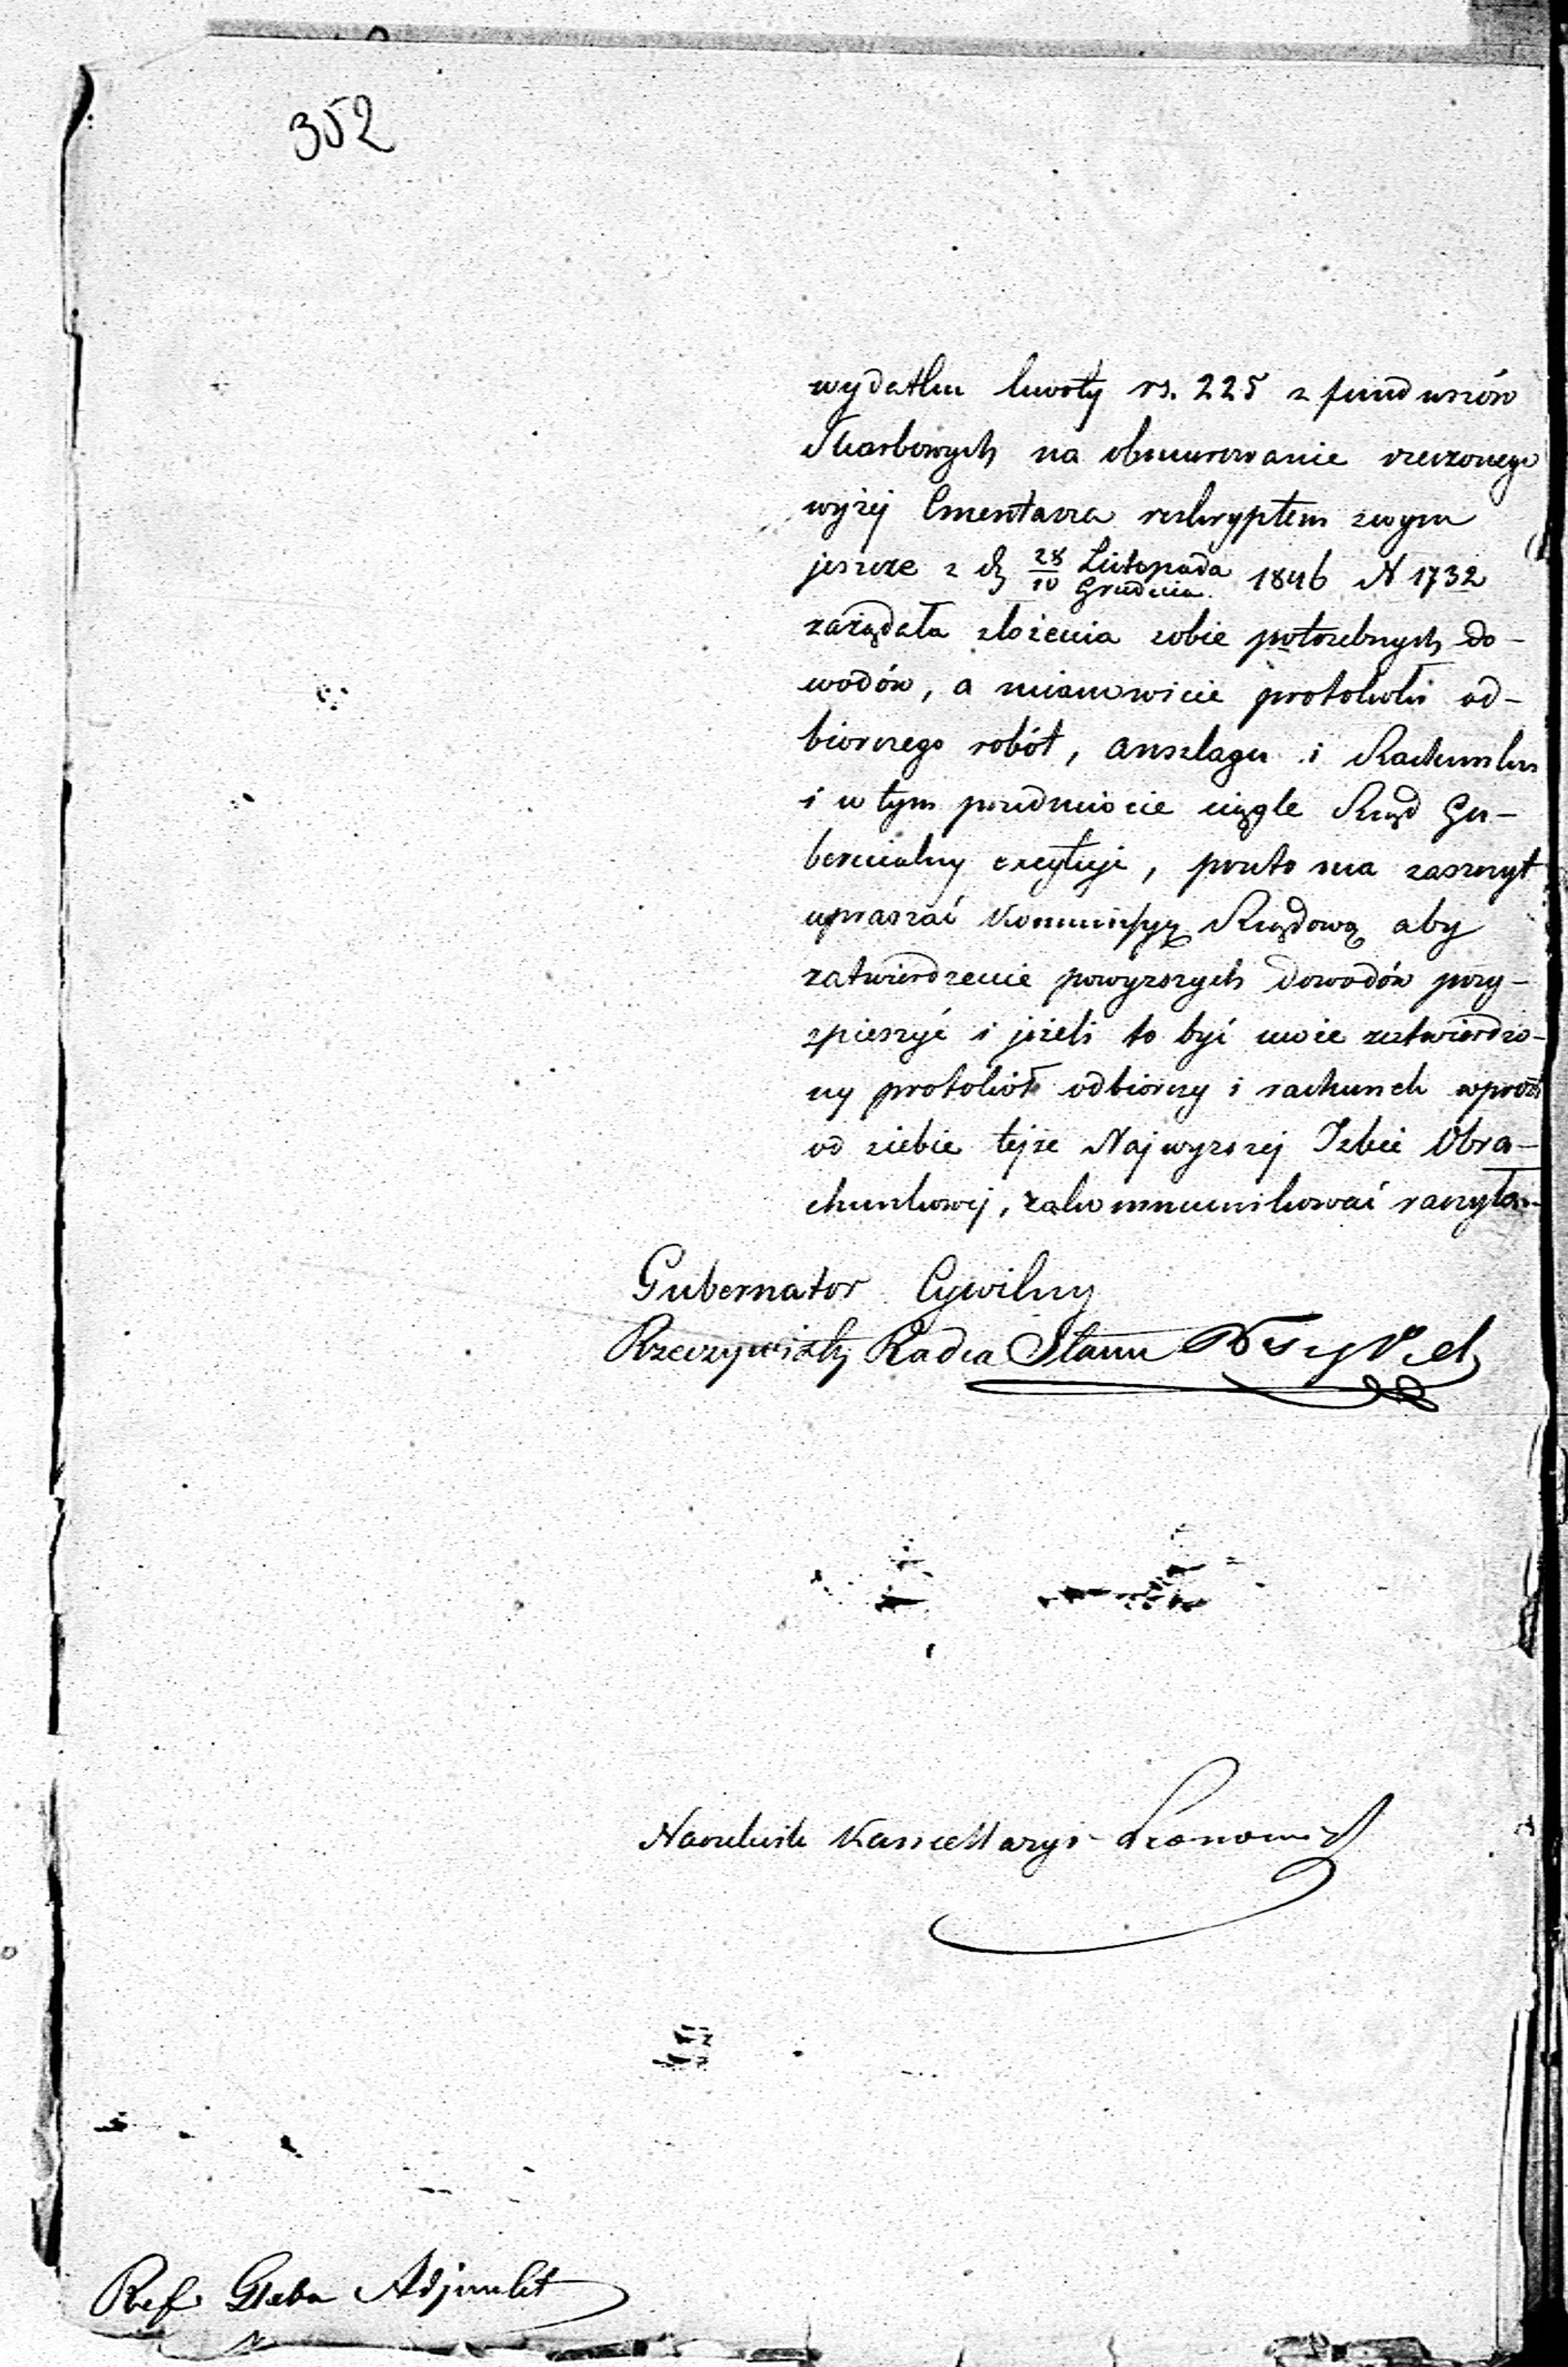 352
wydatku kwoty rs. 225 z funduszów
Skarbowych na obmurowanie rzeczonego
wyżej Cmentarza reskryptem swym
jeszcze z d. 28 Listopada / 10 Grudnia 1846 N 1732
zażądała złożenia sobie potrzebnych do-
wodów, a mianowicie protokołu od-
biorczego robót, anszlagu i Rachunku
i w tym przedmiocie ciągle Rząd Gu-
bernialny excytuje, przeto ma zaszczyt
upraszać Kommissyą Rządową aby
zatwierdzenie powyższych dowodów przy-
spieszyć i jeżeli to być może zatwierdzo-
ny protokół odbiorczy i rachunek wprost
od siebie tejże Najwyższej Izbie Obra-
chunkowej, zakommunikować raczyła.
Gubernator Cywilny
Rzeczywisty Radca Stanu
Naczelnik Kancellaryi
Ref. Adjunkt